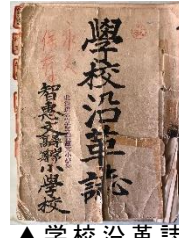 永久
保存
學校沿革誌
智惠文尋常小學校
▲学校沿革誌